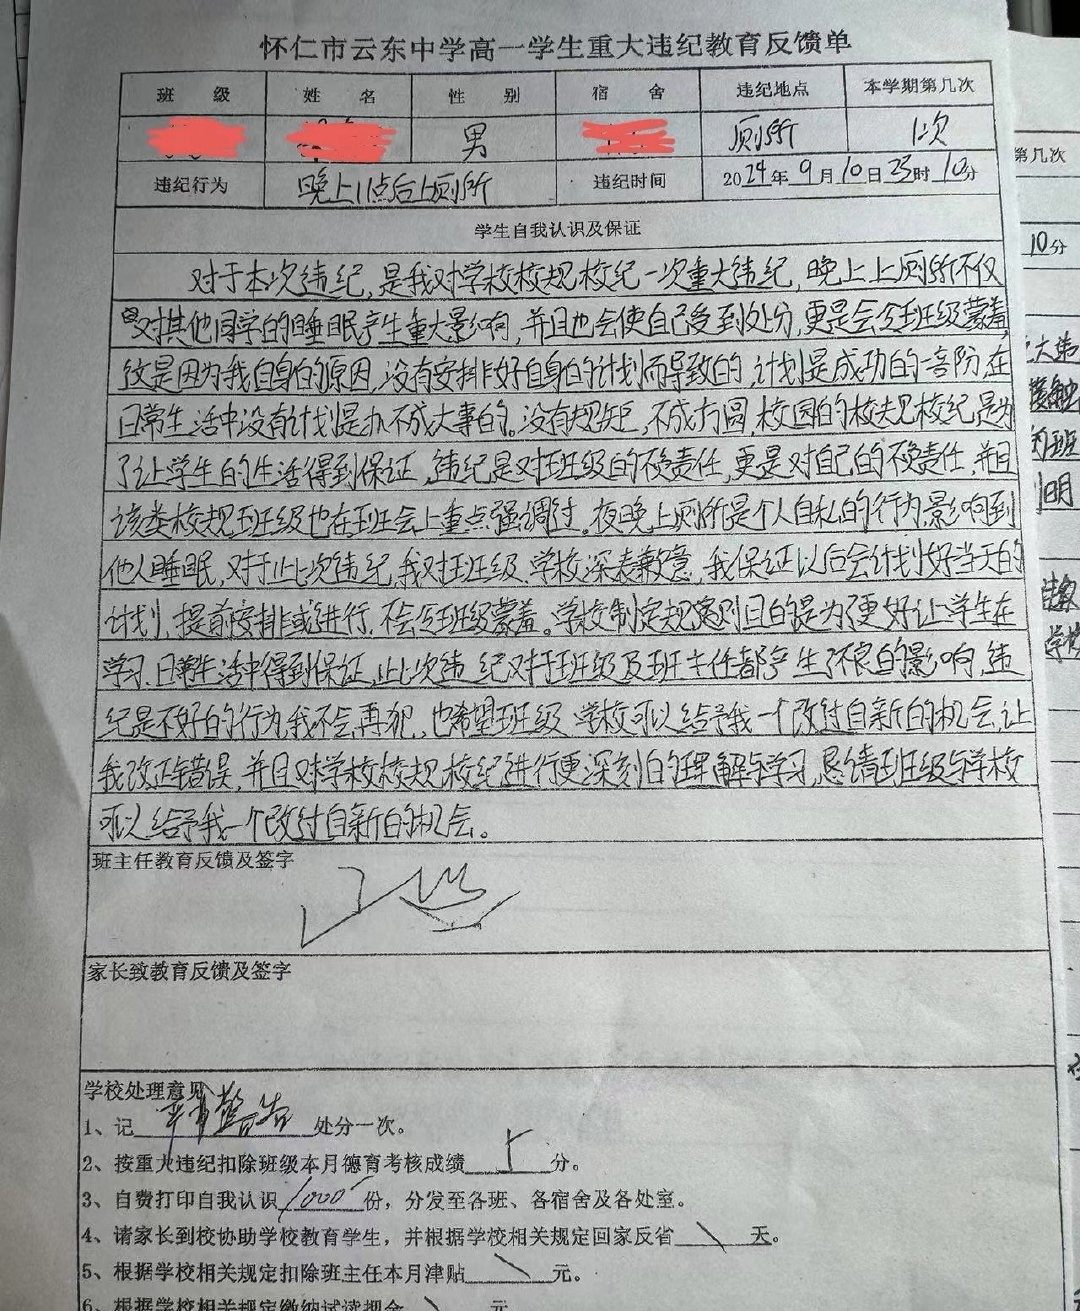 怀仁市云东中学高一学生重大违纪教育反馈单
班 级 姓 名 性 别 宿 舍 违纪地点 本学期第几次
男 厕所 1次
违纪行为 晚上11点后上厕所 违纪时间 2024年9月10日23时10分
学生自我认识及保证
对于本次违纪,是我对学校校规校纪一次重大违纪,晚上上厕所不仅
对其他同学的睡眠产生重大影响,并且也会使自己受到处分,更是会令班级蒙羞,
这是因为我自身的原因,没有安排好自身的计划而导致的,计划是成功的一部份,在
日常生活中没有计划是办不成大事的。没有规矩,不成方圆,校园的校规校纪,是为
了让学生的生活得到保证,违纪是对班级的不负责任,更是对自己的不负责任,并且
该类校规班级也在班会上重点强调过。夜晚上厕所是个人自私的行为,影响到
他人睡眠,对于此次违纪,我对班级、学校深表歉意,我保证以后会计划好当天的
计划,提前安排或进行,不会令班级蒙羞。学校制定规则目的是为了更好让学生在
学习、日常生活中得到保证,此次违纪对于班级及班主任都产生了不良的影响,违
纪是不好的行为,我不会再犯,也希望班级、学校可以给予我一个改过自新的机会,让
我改正错误,并且对学校校规校纪进行更深刻的理解与学习,恳请班级与学校
可以给予我一个改过自新的机会。
班主任教育反馈及签字
家长致教育反馈及签字
学校处理意见
1、记 警告 处分一次。
2、按重大违纪扣除班级本月德育考核成绩 分。
3、自费打印自我认识 1000 份,分发至各班、各宿舍及各处室。
4、请家长到校协助学校教育学生,并根据学校相关规定回家反省 \ 天。
5、根据学校相关规定扣除班主任本月津贴 \ 元。
6、根据学校相关规定缴纳试读押金 \ 元
第几次
10分
大违
接触
的班
明
学校